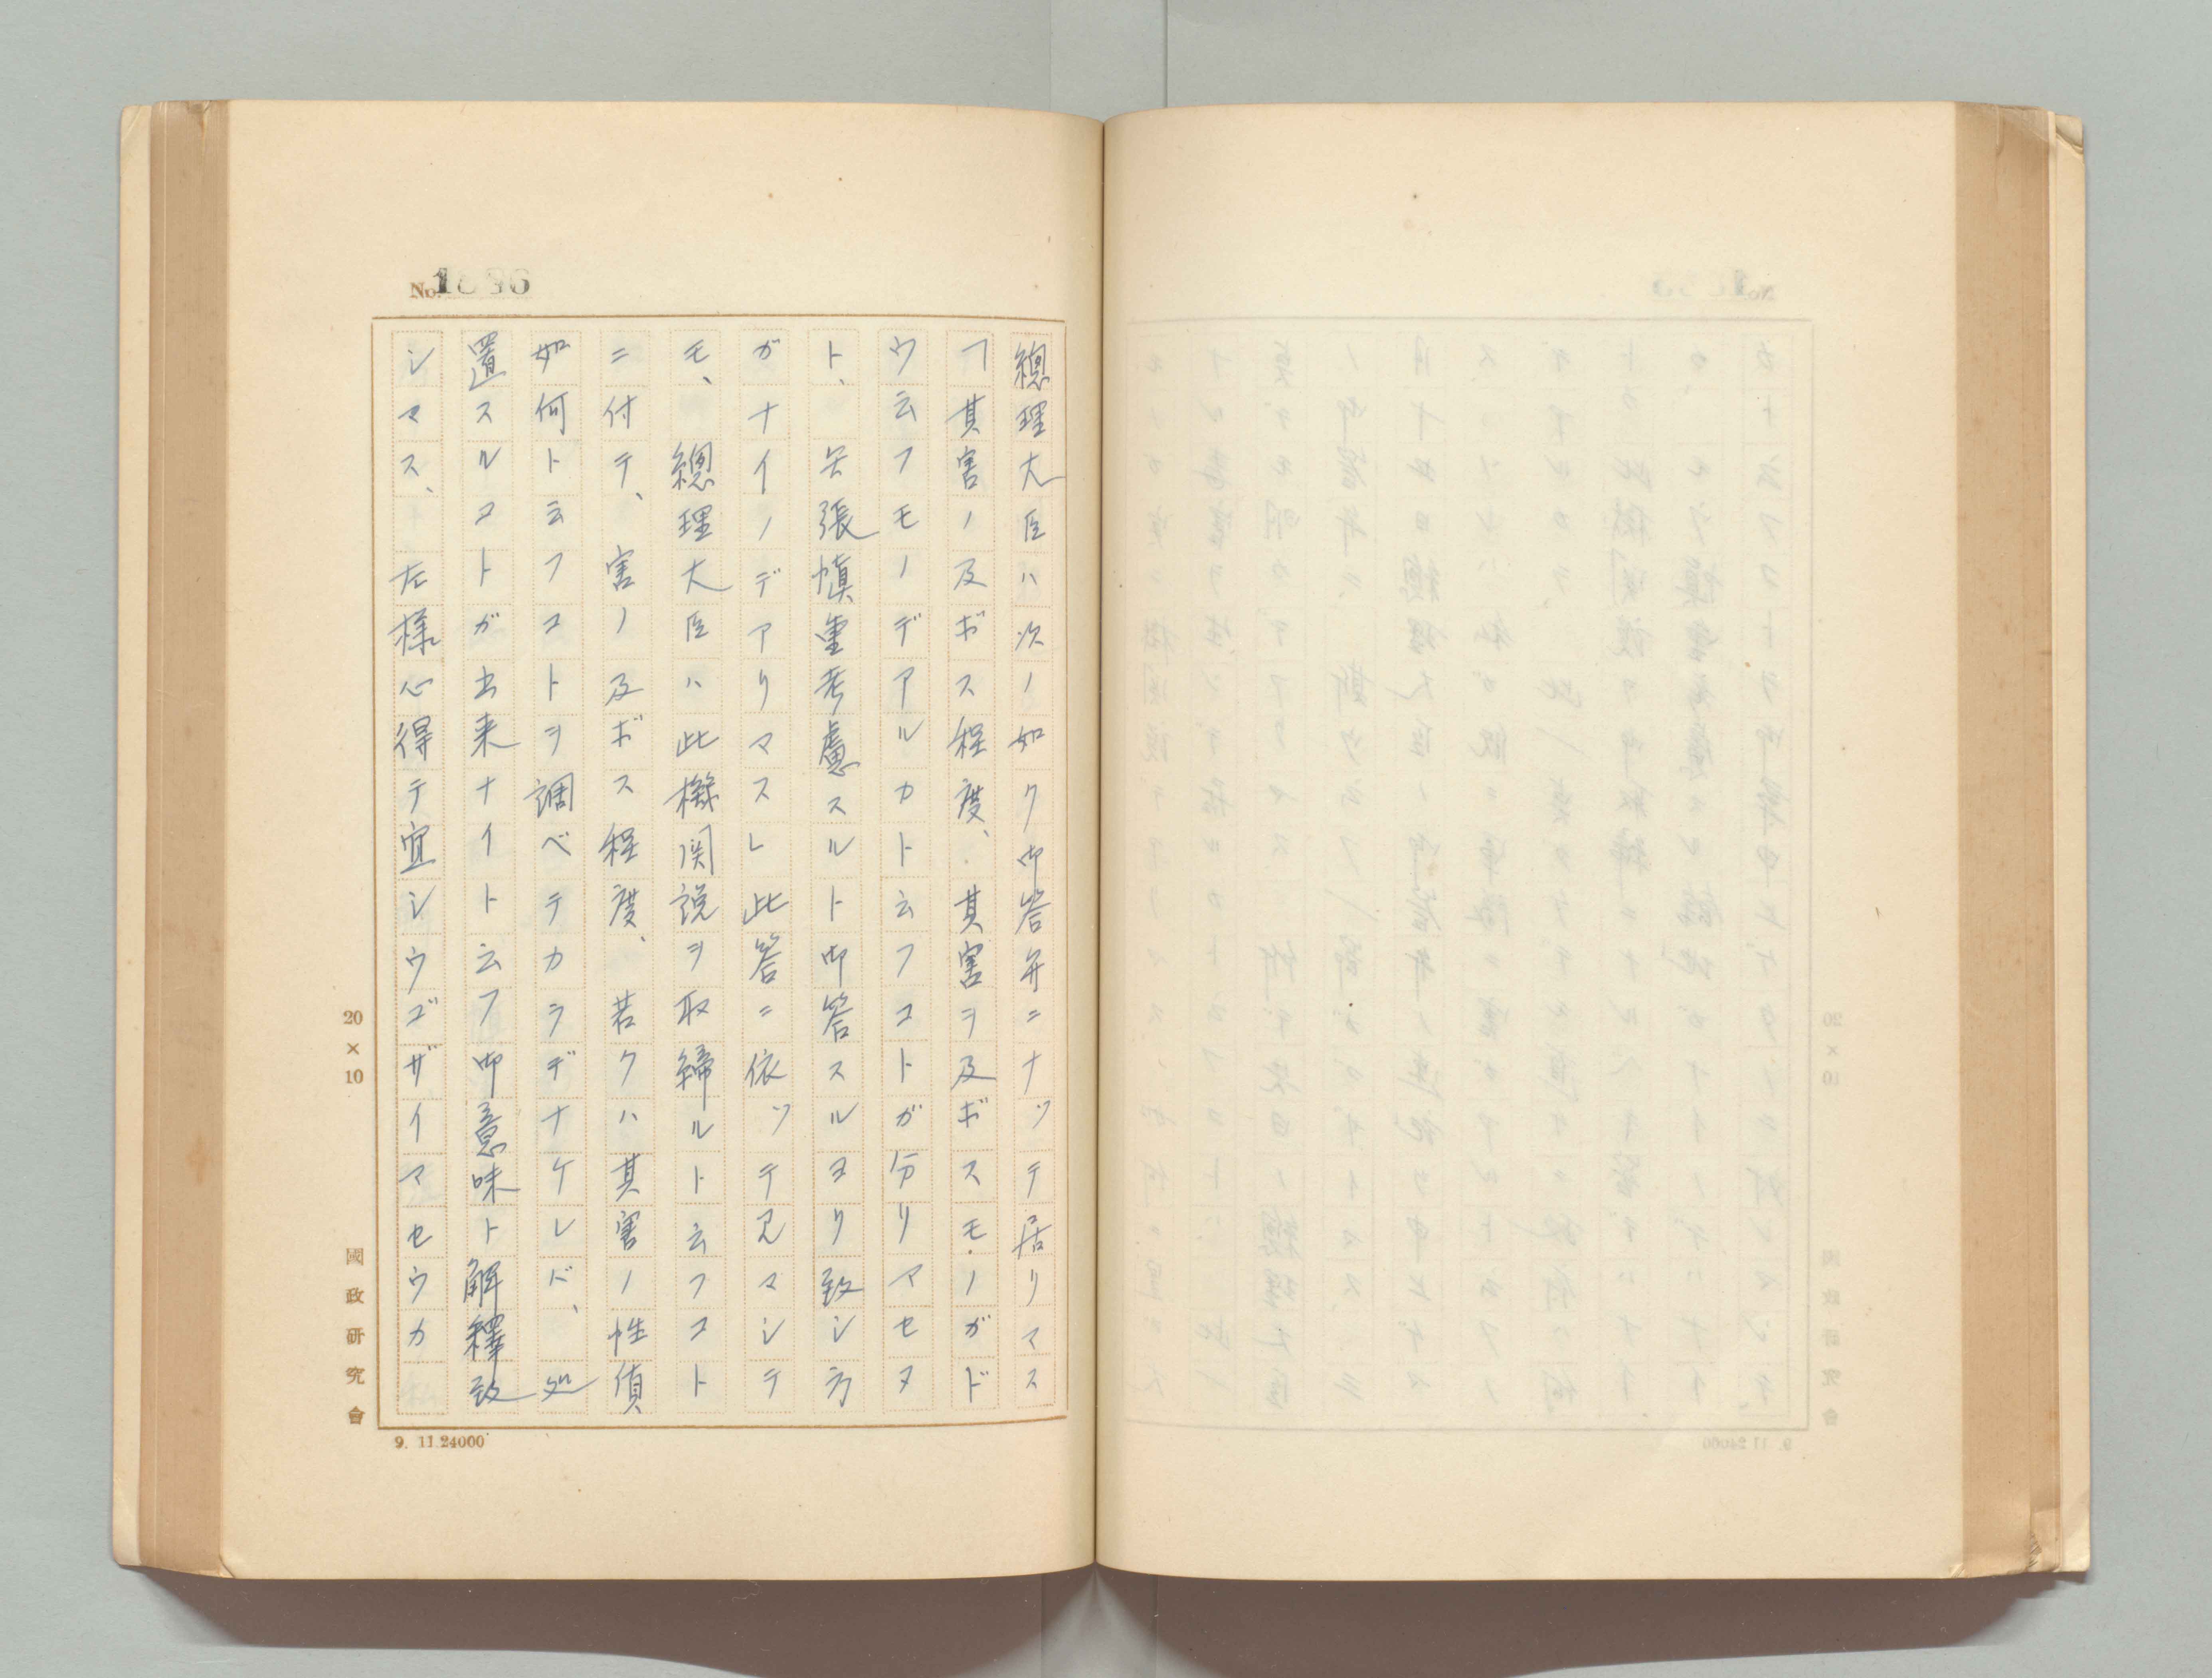 No. 1896
總理大臣ハ次ノ如ク御答弁ニナッテ居リマス
「其害ノ及ボス程度、其害ヲ及ボスモノガド
ウ云フモノデアルカト云フコトガ分リマセヌ
ト、矢張慎重考慮スルト御答スルヨリ致シ方
ガナイノデアリマスレ此答ニ依ッテ見マシテ
モ、總理大臣ハ此機関説ヲ取締ルト云フコト
ニ付テ、害ノ及ボス程度、若クハ其害ノ性質
如何ト云フコトヲ調ベテカラデナケレバ、処
置スルコトガ出来ナイト云フ御意味ト解釋致
シマス、左様心得テ宜シウゴザイマセウカ
20×10
國政研究會
9. 11.24000